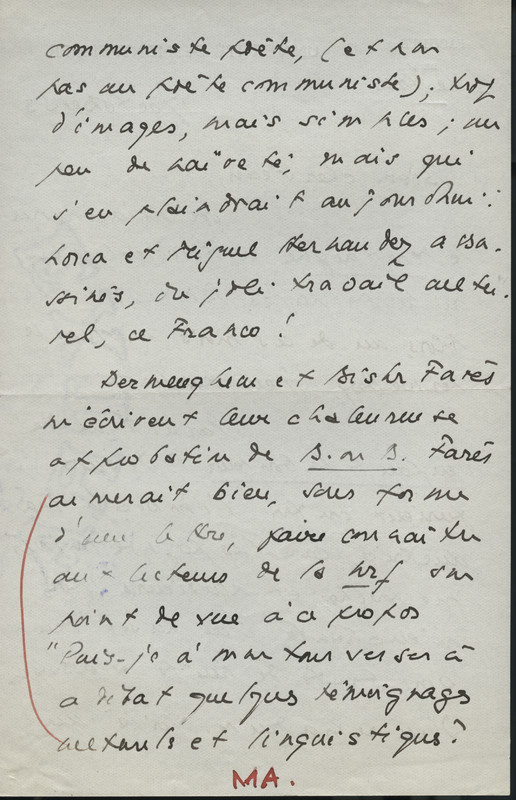 communiste poète, (et non
pas au poète communiste); trop
d'images, mais simples; un
peu de naïveté; mais qui
s'en plaindrait aujourd'hui:
Lorca et Miguel Hernandez assa-
ssinés, du joli travail cultu-
rel, ce Franco!
Dermenghem et Bishr Farès
m'écrivent leur chaleureuse
approbation de B. ou B. Farès
aimerait bien, sous forme
d'une lettre, faire connaître
aux lecteurs de la nrf son
point de vue à ce propos
"Puis-je à mon tour verser à
ce débat quelques témoignages
culturels et linguistiques?
MA.